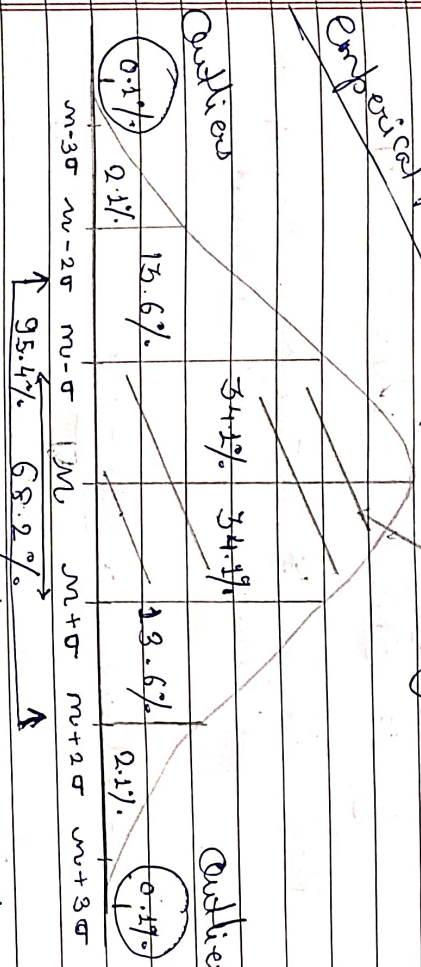 Emperical
Outliers
Outlie
0.1%
2.1%
13.6%
34.1%
34.1%
13.6%
2.1%
0.1%
m-3σ m-2σ m-σ M m+σ m+2σ m+3σ
68.2%
95.4%